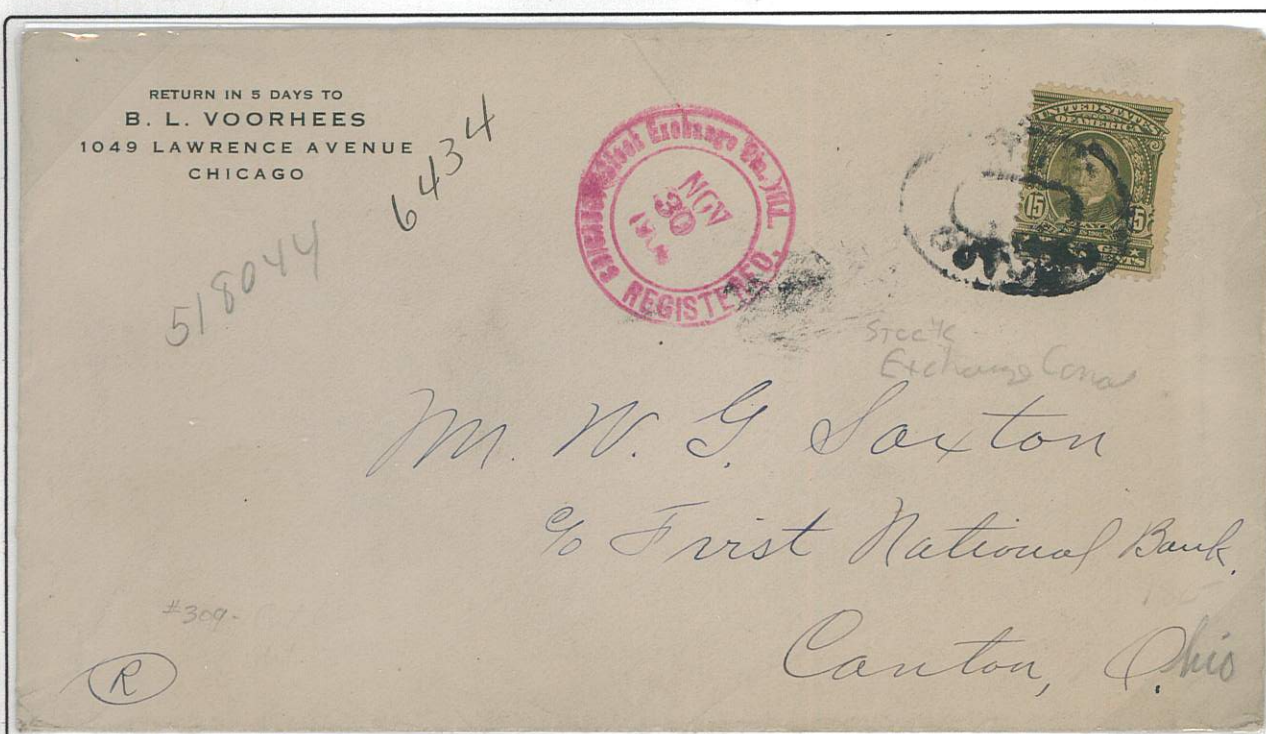 RETURN IN 5 DAYS TO
B. L. VOORHEES
1049 LAWRENCE AVENUE
CHICAGO
6434
518044
(Stock Exchange Sta.) ILL.
NOV
30
REGISTERED.
UNITED STATES
OF AMERICA
15
CENTS
Stock
Exchange
Mr. W. G. Saxton
c/o Frist National Bank.
Canton, Ohio
#309-
R